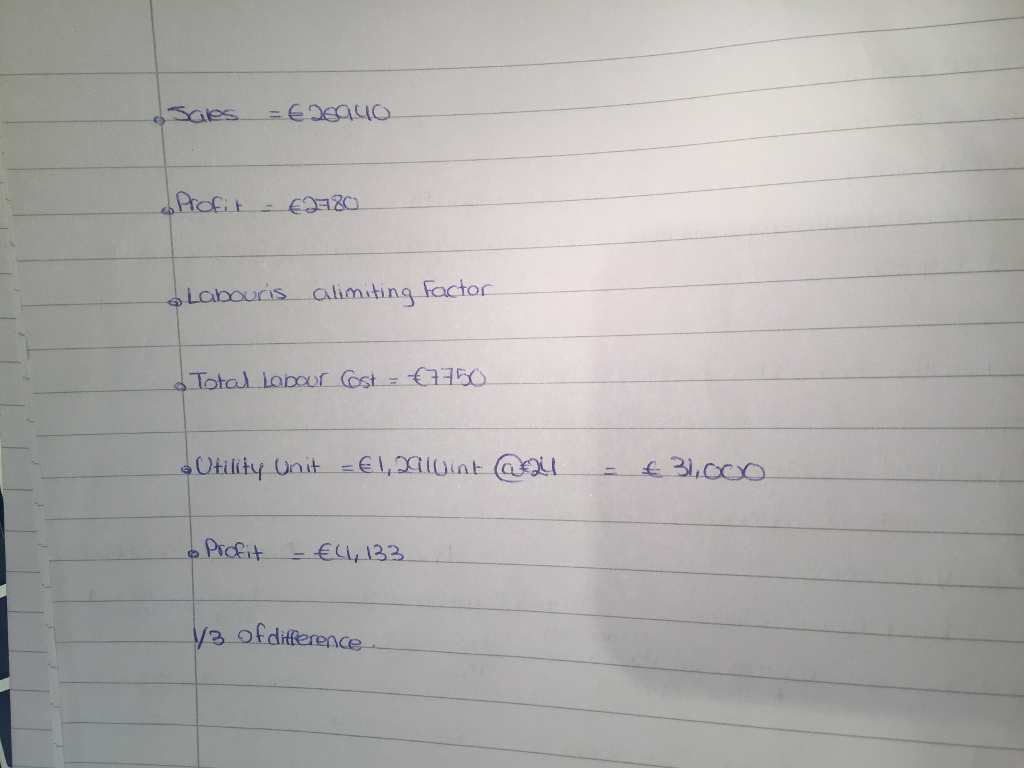 Sales = €26940
Profit = €2780
Labour is a limiting factor
Total Labour Cost = €7750
Utility Unit = €1,291 Uint @€24 = € 31,000
Profit = €4,133
1/3 of difference.